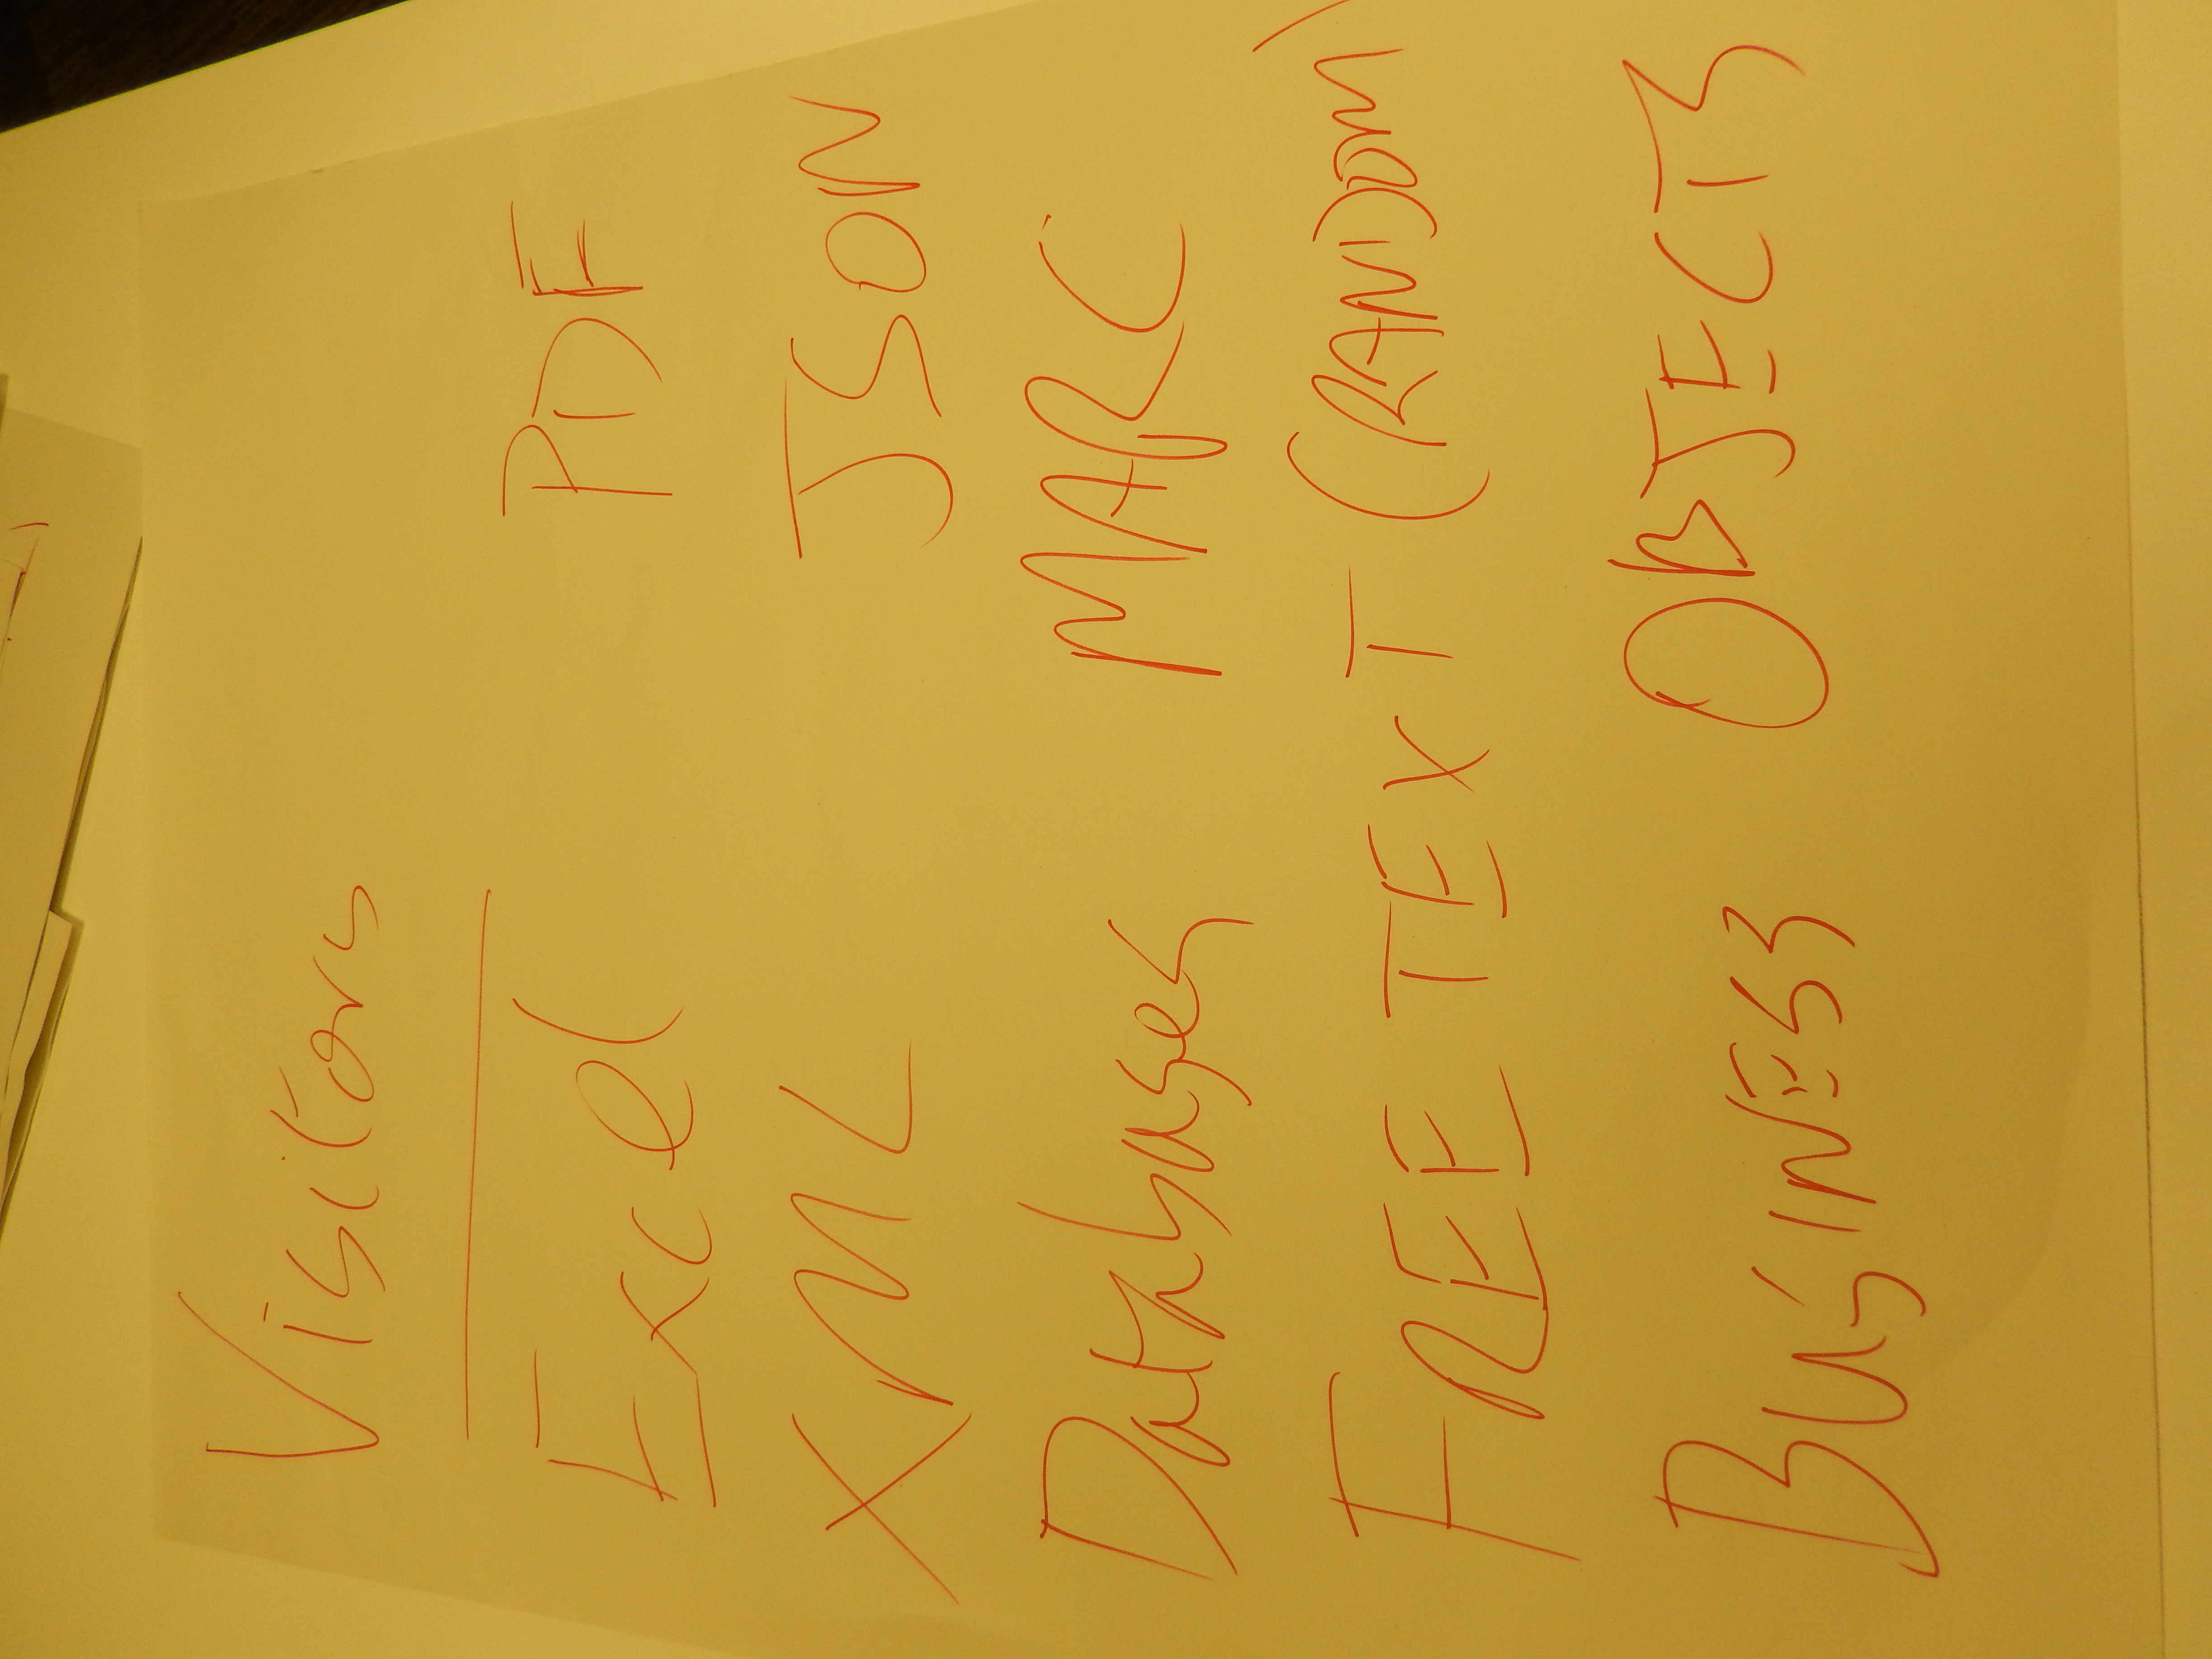 Visitors
Excel PDF
XML JSON
Databases MARC
FREE TEXT (RANDOM)
BUSINESS OBJECTS